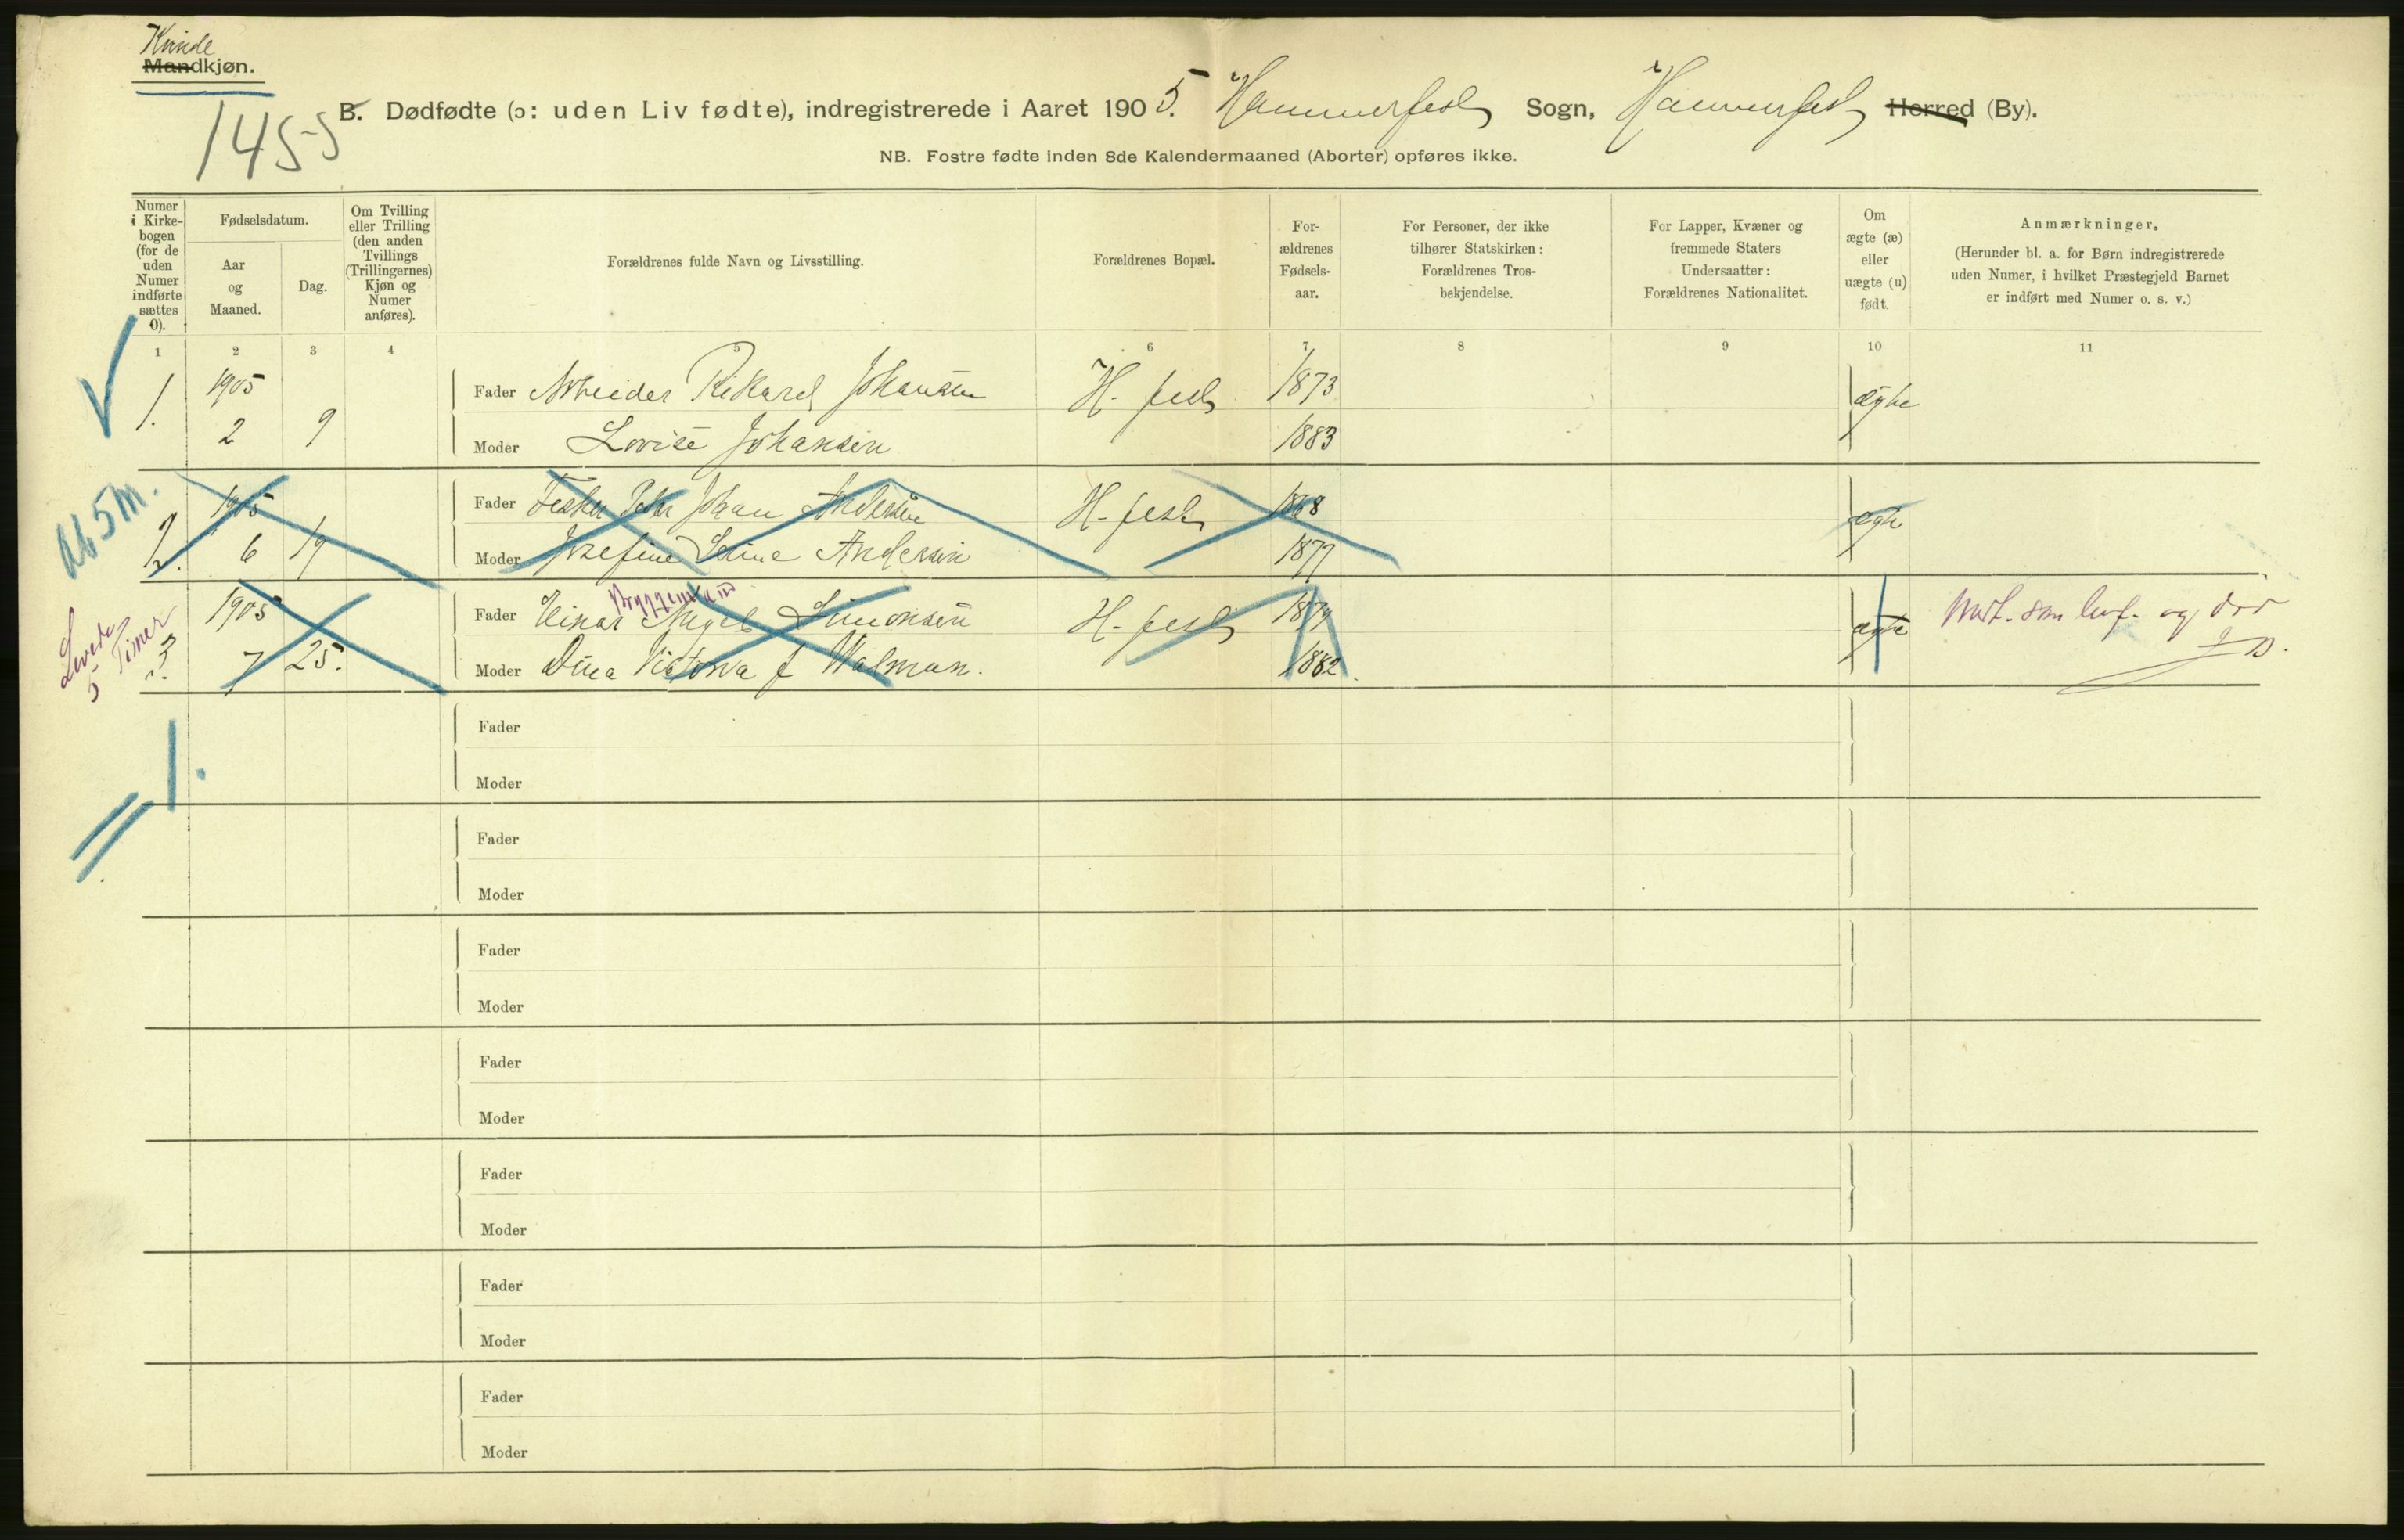 Kvinde
Mandkjøn.
1455
B. Dødfødte (ɔ: uden Liv fødte), indregistrerede i Aaret 1905. Hammerfest Sogn, Hammerfest Herred (By).
NB. Fostre fødte inden 8de Kalendermaaned (Aborter) opføres ikke.
Numer i Kirkebogen (for de uden Numer indførte sættes 0).
Fødselsdatum.
Aar og Maaned.
Dag.
Om Tvilling eller Trilling (den anden Tvillings (Trillingernes) Kjøn og Numer anføres).
Forældrenes fulde Navn og Livsstilling.
Forældrenes Bopæl.
For-ældrenes Fødsels-aar.
For Personer, der ikke tilhører Statskirken: Forældrenes Tros-bekjendelse.
For Lapper, Kvæner og fremmede Staters Undersaatter: Forældrenes Nationalitet.
Om ægte (æ) eller uægte (u) født.
Anmærkninger.
(Herunder bl. a. for Børn indregistrerede uden Numer, i hvilket Præstegjeld Barnet er indført med Numer o. s. v.)
1 2 3 4 5 6 7 8 9 10 11
1. 1905 Fader Arbeider Rikard Johansen H. fest 1873 ægte
2 9 Moder Lovise Johansen 1883
2. 1905 Fader Fisker Peder Johan Andersen H. fest 1868 ægte
6 19 Moder Josefine Andersen 1877
Levede 5 Timer
Byggem
3. 1905 Fader Einar Simonsen H. fest ægte som lev. og død
7 25. Moder Dina Victoria f Walmun. 1882.
1.
Fader
Moder
Fader
Moder
Fader
Moder
Fader
Moder
Fader
Moder
Fader
Moder
Fader
Moder